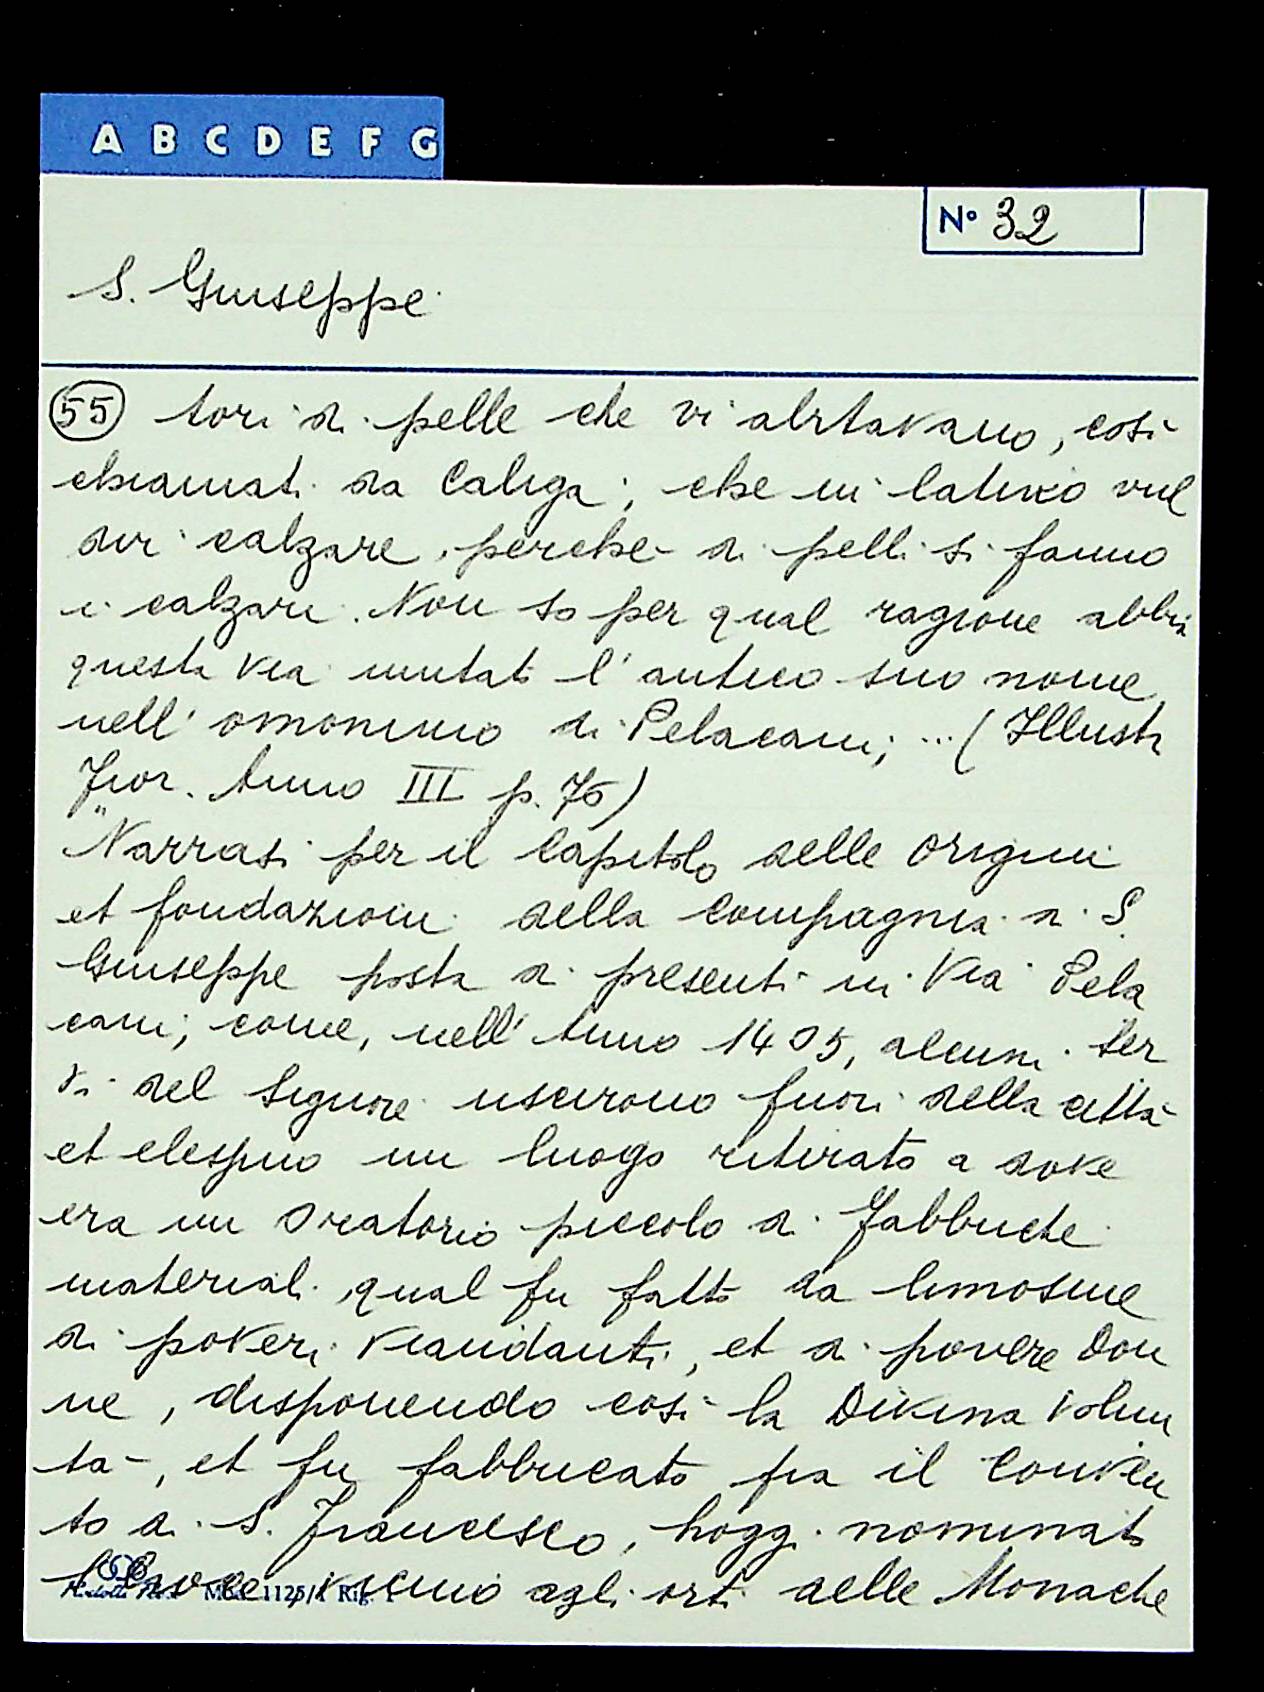 A B C D E F G
Nº 32
S. Giuseppe
55 tori di pelle che vi abitavano, così
chiamati da Caliga; che in latino vuol
dir calzare, perchè di pelli si fanno
i calzari. Non so per qual ragione abbia
questa via mutato l'antico suo nome
nell'omonimo di Pelacani; ... (Illustr
Fior. Anno III p. 76)
"Narrasi per il Capitolo delle Origini
et fondazioni della Compagnia di S.
Giuseppe posta di presenti in Via Pela
cani; come, nell'Anno 1405, alcuni Ser
vi del Signore uscirono fuori della città
et elespno un luogo ritirato a dove
era un Oratorio piccolo di Fabbriche
materiali, qual fu fatto da limosine
di poveri viandanti, et di povere Don
ne, disponendo così la Divina volun
tà, et fu fabbricato fra il Conven
to di S. Francesco, hoggi nominato
vicino agli orti delle Monache
Mod. 1125/1 Rig. 1